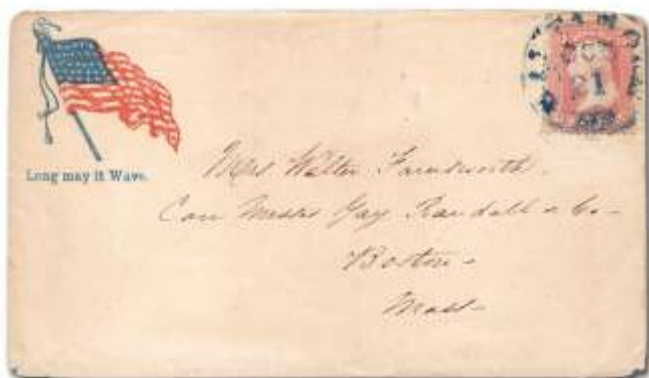 Long may it Wave.
OCT
21
Mrs Walter Farnsworth.
Care Messrs Gay Randall & Co-
Boston-
Mass-